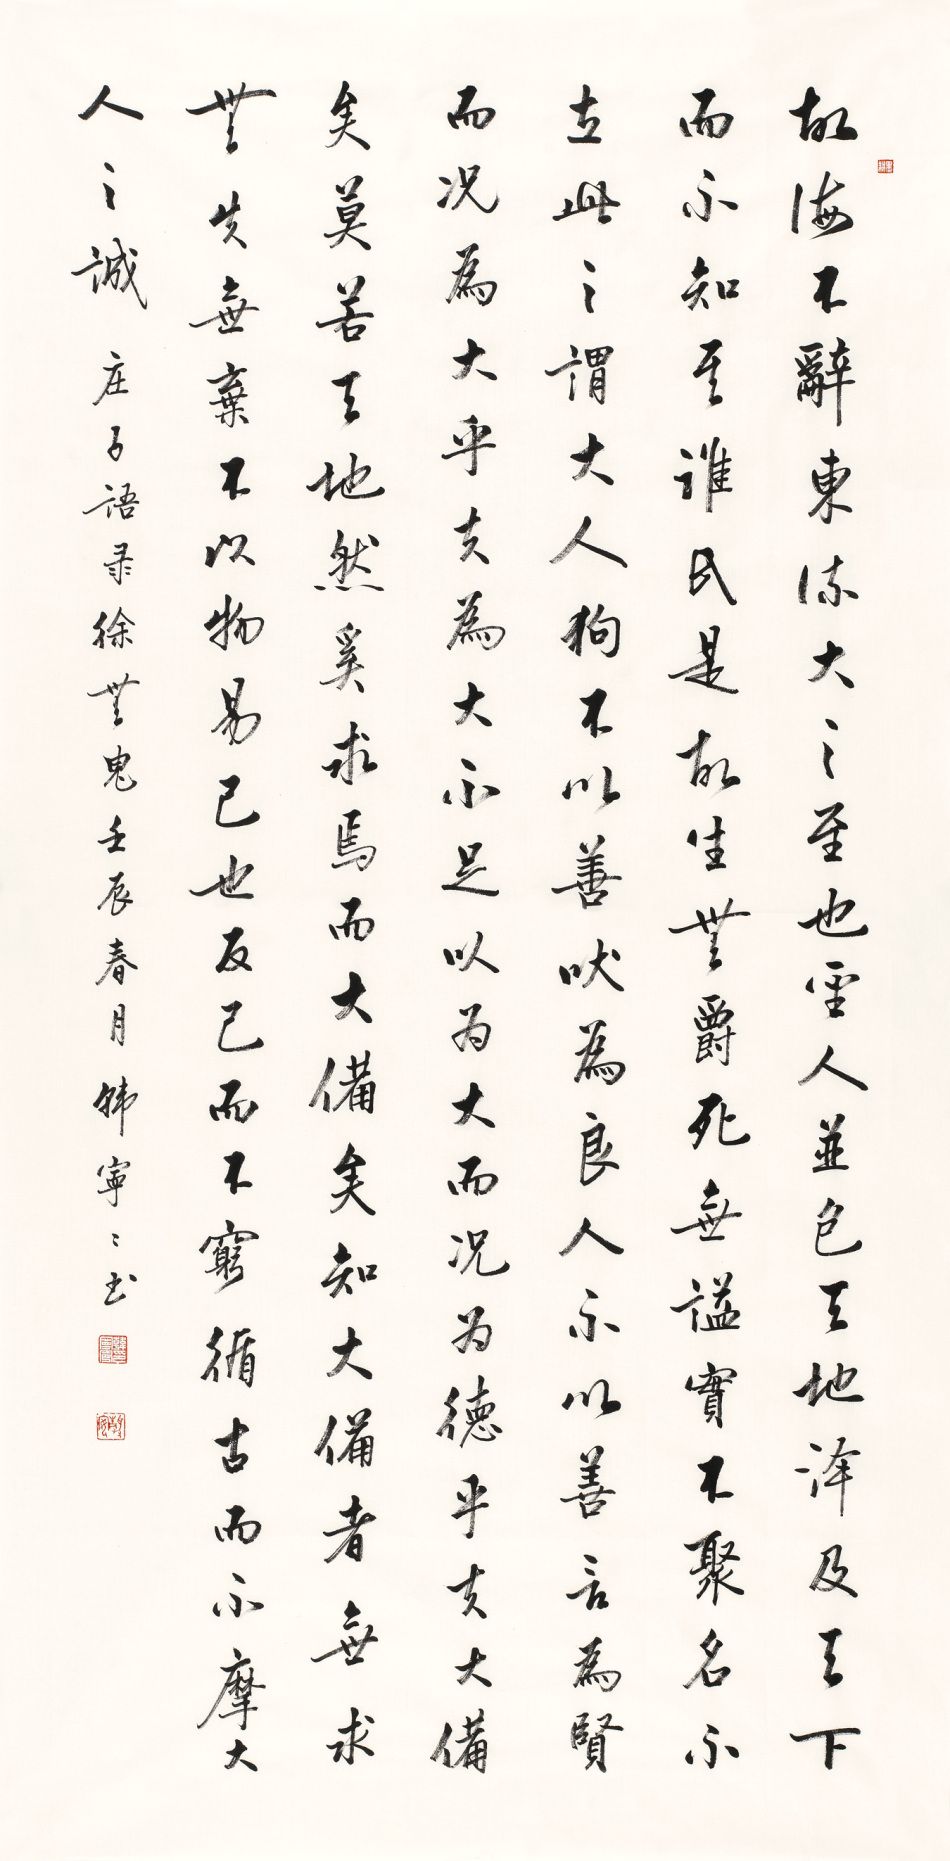 故海不辭東流大之至也聖人並包天地澤及天下
而不知其誰氏是故生無爵死無謚實不聚名不
立此之謂大人狗不以善吠為良人不以善言為賢
而况為大乎夫為大不足以为大而况为德乎夫大備
矣莫若天地然奚求焉而大備矣知大備者無求
無失無棄不以物易己也反己而不窮循古而不摩大
人之誠 庄子語录徐無鬼壬辰春月韩寧寧书